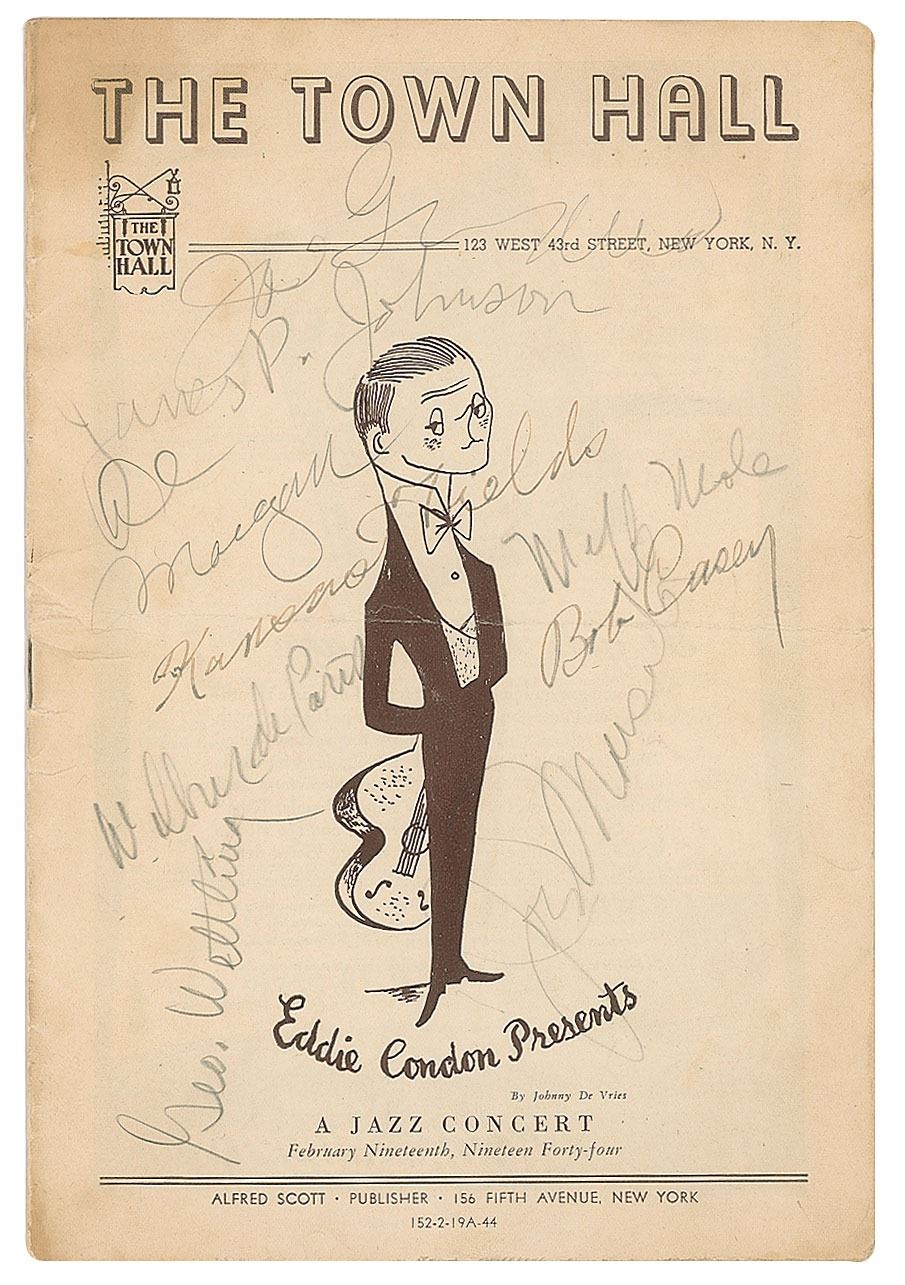 THE TOWN HALL
THE
TOWN
HALL
123 WEST 43rd STREET, NEW YORK, N. Y.
Joe
James P. Johnson
De
Morgan
Kansas Fields
Miff Mole
Bob Casey
Wilbur de Paris
Geo. Wettling
Eddie Condon Presents
By Johnny De Vries
A JAZZ CONCERT
February Nineteenth, Nineteen Forty-four
ALFRED SCOTT · PUBLISHER · 156 FIFTH AVENUE, NEW YORK
152-2-19A-44